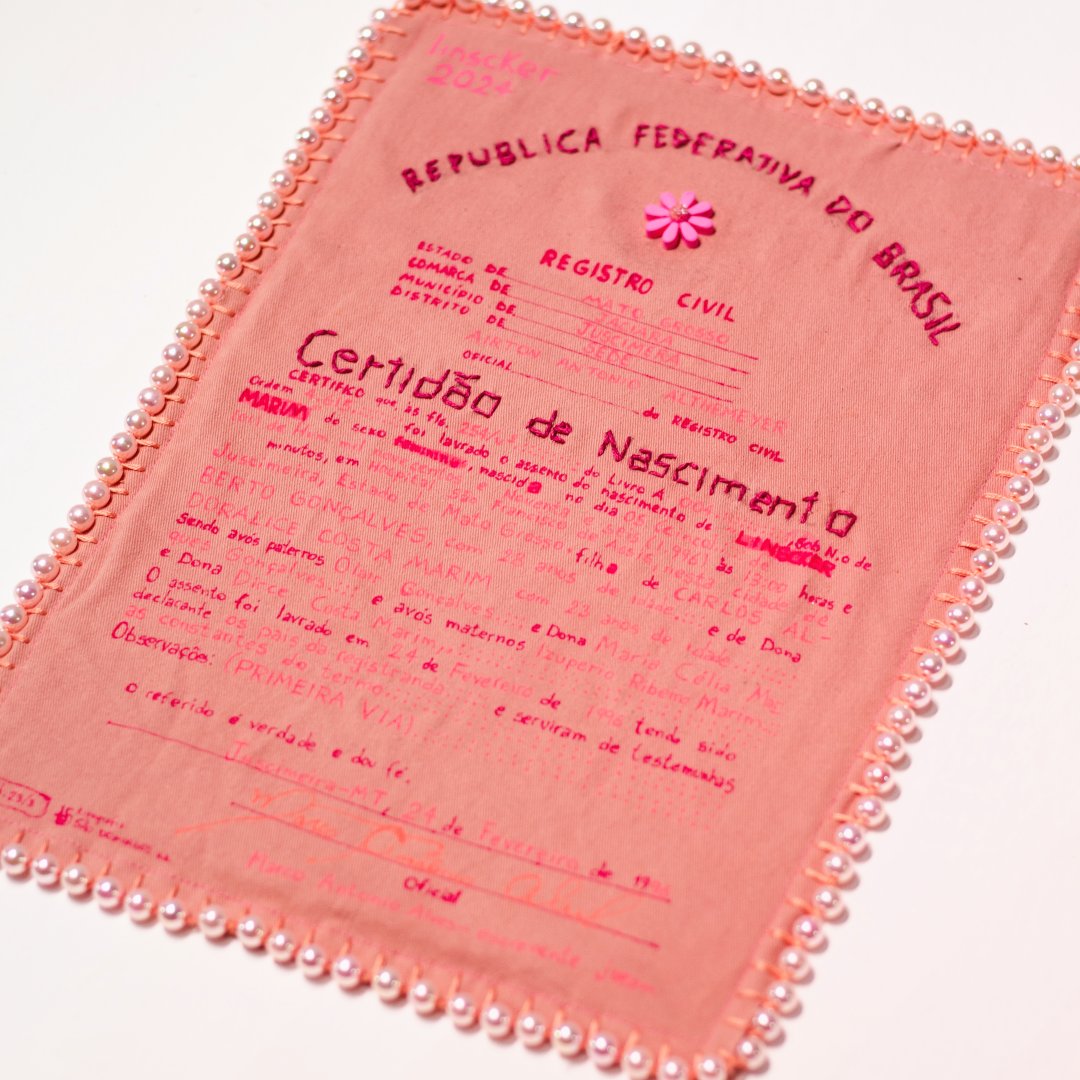 linscker
2024
REPUBLICA FEDERATIVA DO BRASIL
REGISTRO CIVIL
ESTADO DE MATO GROSSO
COMARCA DE JACIARA
MUNICÍPIO DE JUSCIMEIRA
DISTRITO DE SEDE
AIRTON ANTONIO ALTHEMEYER
OFICIAL do REGISTRO CIVIL
Certidão de Nascimento
CERTIFICO que às fls. 254/vs, do Livro A Sob N.o de
Ordem foi lavrado o assento do nascimento de LINSCKER
MARIM do sexo , nascida no dia 05 de
mil novecentos e Noventa e Seis (1.996) às 13:00 horas e
minutos, em Hospital São Francisco de Assis, nesta cidade de
Juscimeira, Estado de Mato Grosso. filha de CARLOS AL-
BERTO GONÇALVES, com 28 anos de idade e de Dona
DORALICE COSTA MARIM com 23 anos de idade
Sendo avós paternos Olair Gonçalves e Dona Maria Célia
Gonçalves e avós maternos Izuperio Ribeiro Marim
e Dona Dirce Costa Marim,
O assento foi lavrado em 24 de Fevereiro de 1996 tendo sido
declarante os pais da registranda e serviram de testemunhas
as constantes do termo
Observações: (PRIMEIRA VIA)
o referido é verdade e dou fé.
Juscimeira-MT, 24 de Fevereiro de 1996
Oficial
Marco Antonio Alves